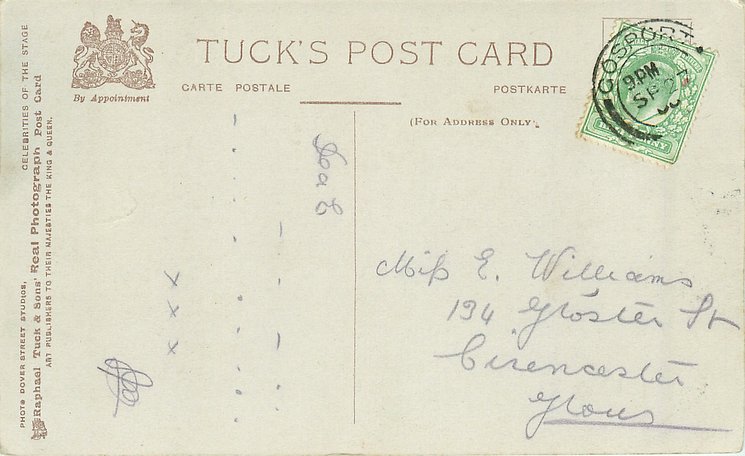 TUCK'S POST CARD
CARTE POSTALE
POSTKARTE
(FOR ADDRESS ONLY.
By Appointment
CELEBRITIES OF THE STAGE
PHOTO DOVER STREET STUDIOS.
Raphael Tuck & Sons' Real Photograph Post Card
ART PUBLISHERS TO THEIR MAJESTIES THE KING & QUEEN.
GOSPORT
9 PM
SP 27
x x x
Miss E. Williams
134 Gloster St
Cirencester
Glous